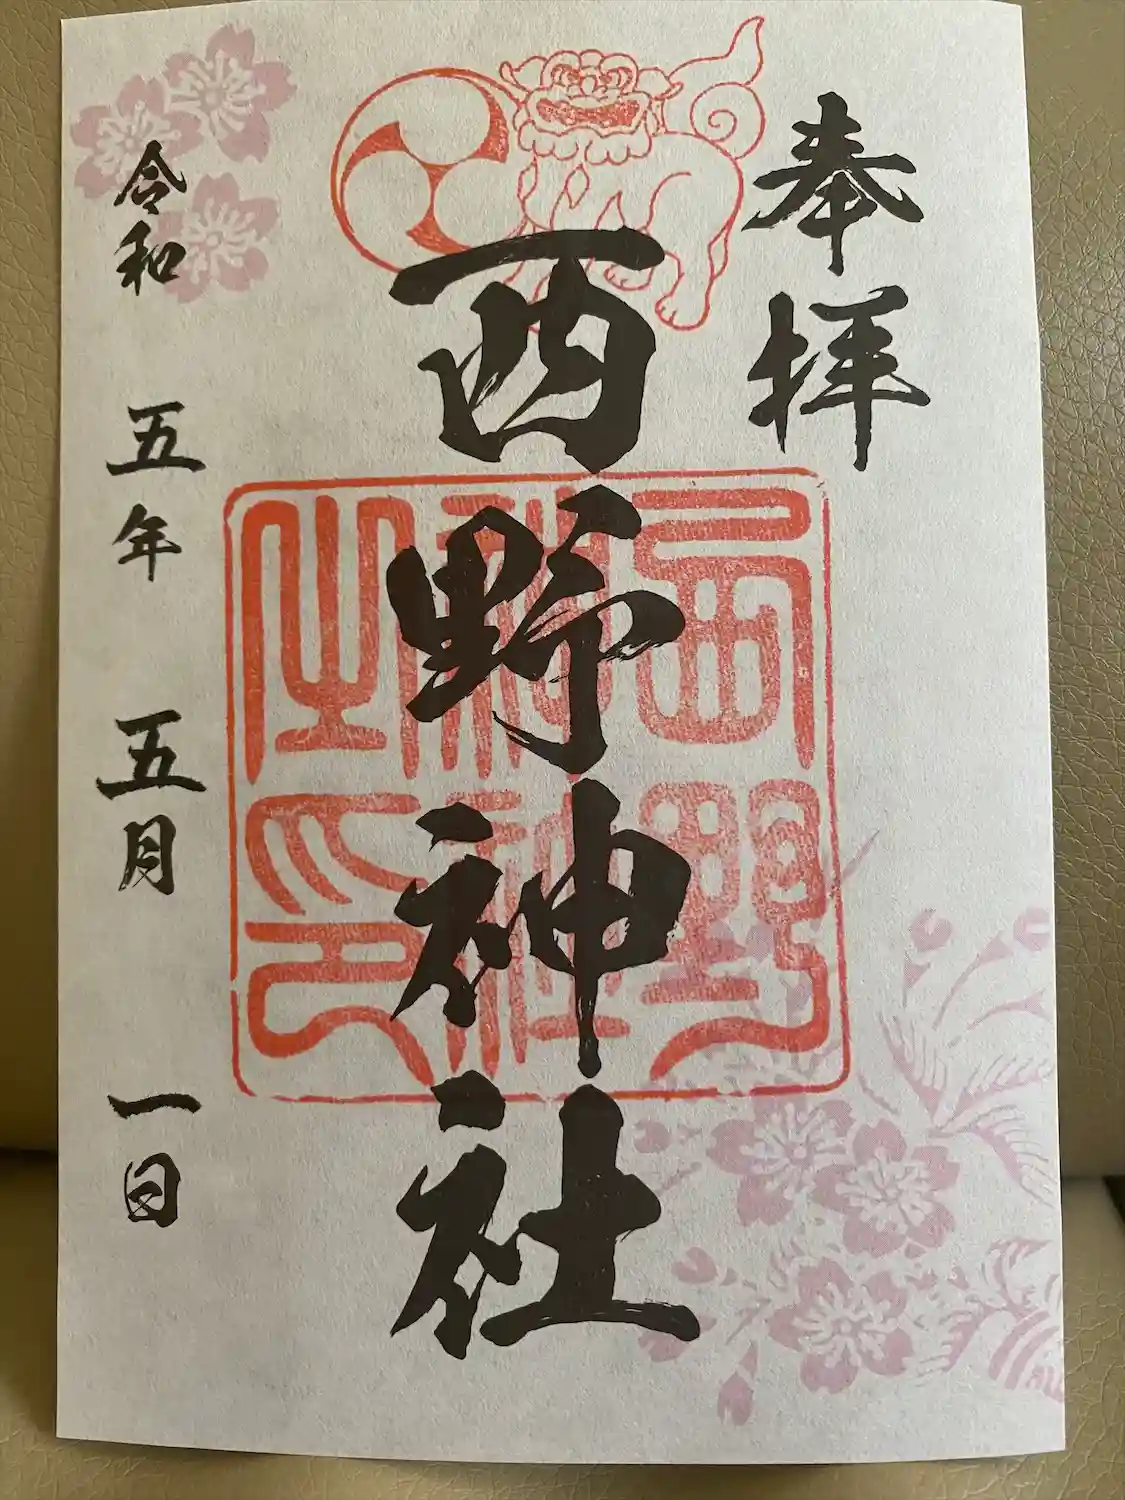 奉拝
西野神社
西野神社之印
令和五年五月一日